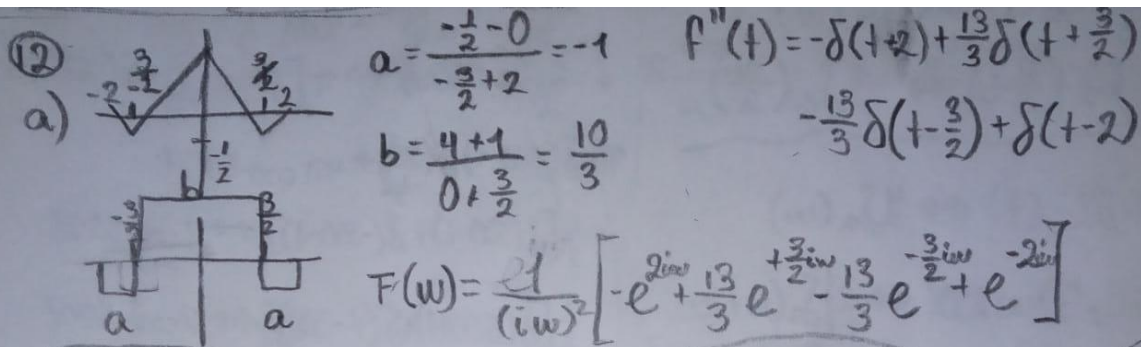 12
a)
-2 -3/2 3/2 2
-1/2
b
-3/2 3/2
a a
a = (-1/2 - 0)/(-3/2 + 2) = -1
b = (4 + 1)/(0 + 3/2) = 10/3
f''(t) = -δ(t+2) + 13/3 δ(t + 3/2)
- 13/3 δ(t - 3/2) + δ(t - 2)
F(w) = 1/(iw)² [-e^{2iw} + 13/3 e^{+3/2 iw} - 13/3 e^{-3/2 iw} + e^{-2iw}]